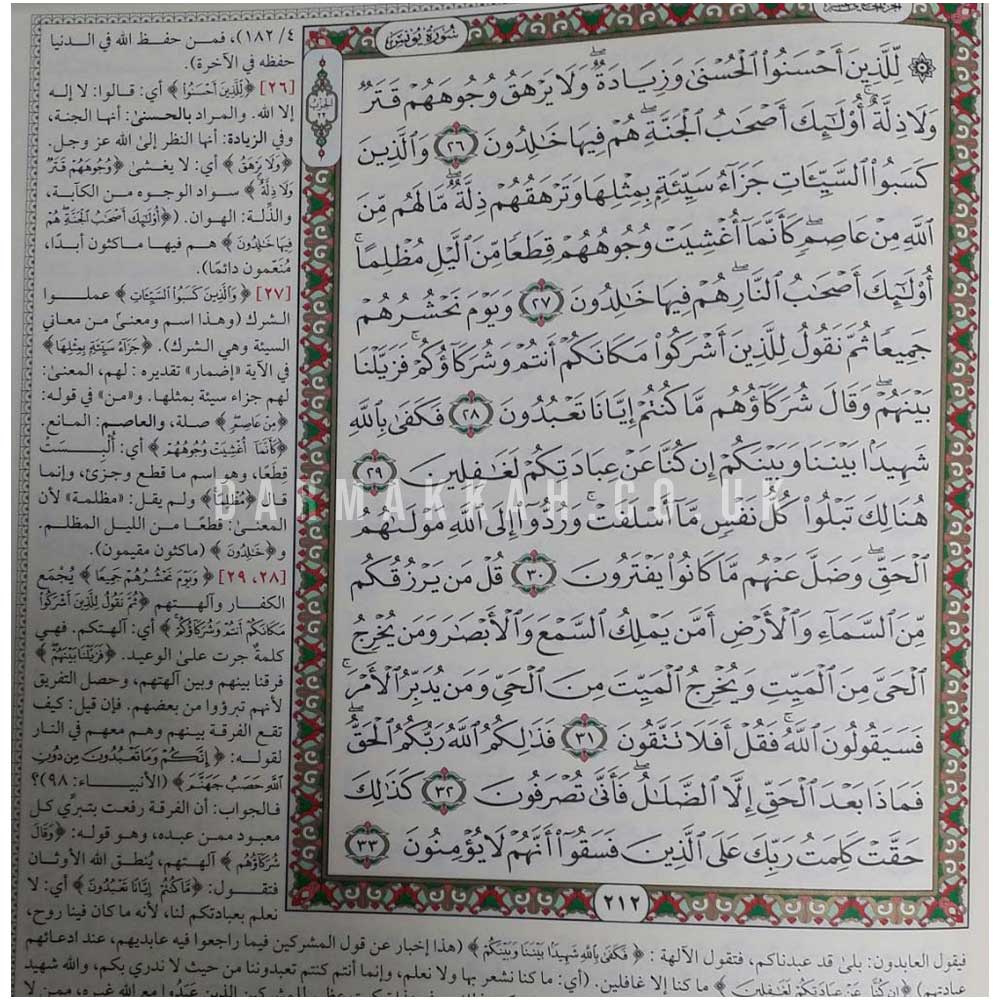 سُورَةُ يُونُسَ
۞ لِّلَّذِينَ أَحْسَنُوا۟ ٱلْحُسْنَىٰ وَزِيَادَةٌ ۖ وَلَا يَرْهَقُ وُجُوهَهُمْ قَتَرٌ
وَلَا ذِلَّةٌ ۚ أُو۟لَـٰٓئِكَ أَصْحَـٰبُ ٱلْجَنَّةِ ۖ هُمْ فِيهَا خَـٰلِدُونَ ٢٦ وَٱلَّذِينَ
كَسَبُوا۟ ٱلسَّيِّـَٔاتِ جَزَآءُ سَيِّئَةٍۭ بِمِثْلِهَا وَتَرْهَقُهُمْ ذِلَّةٌ ۖ مَّا لَهُم مِّنَ
ٱللَّهِ مِنْ عَاصِمٍ ۖ كَأَنَّمَآ أُغْشِيَتْ وُجُوهُهُمْ قِطَعًا مِّنَ ٱلَّيْلِ مُظْلِمًا ۚ
أُو۟لَـٰٓئِكَ أَصْحَـٰبُ ٱلنَّارِ ۖ هُمْ فِيهَا خَـٰلِدُونَ ٢٧ وَيَوْمَ نَحْشُرُهُمْ
جَمِيعًا ثُمَّ نَقُولُ لِلَّذِينَ أَشْرَكُوا۟ مَكَانَكُمْ أَنتُمْ وَشُرَكَآؤُكُمْ ۚ فَزَيَّلْنَا
بَيْنَهُمْ ۖ وَقَالَ شُرَكَآؤُهُم مَّا كُنتُمْ إِيَّانَا تَعْبُدُونَ ٢٨ فَكَفَىٰ بِٱللَّهِ
شَهِيدًۢا بَيْنَنَا وَبَيْنَكُمْ إِن كُنَّا عَنْ عِبَادَتِكُمْ لَغَـٰفِلِينَ ٢٩
هُنَالِكَ تَبْلُوا۟ كُلُّ نَفْسٍ مَّآ أَسْلَفَتْ ۚ وَرُدُّوٓا۟ إِلَى ٱللَّهِ مَوْلَىٰهُمُ
ٱلْحَقِّ ۖ وَضَلَّ عَنْهُم مَّا كَانُوا۟ يَفْتَرُونَ ٣٠ قُلْ مَن يَرْزُقُكُم
مِّنَ ٱلسَّمَآءِ وَٱلْأَرْضِ أَمَّن يَمْلِكُ ٱلسَّمْعَ وَٱلْأَبْصَـٰرَ وَمَن يُخْرِجُ
ٱلْحَىَّ مِنَ ٱلْمَيِّتِ وَيُخْرِجُ ٱلْمَيِّتَ مِنَ ٱلْحَىِّ وَمَن يُدَبِّرُ ٱلْأَمْرَ ۚ
فَسَيَقُولُونَ ٱللَّهُ ۚ فَقُلْ أَفَلَا تَتَّقُونَ ٣١ فَذَٰلِكُمُ ٱللَّهُ رَبُّكُمُ ٱلْحَقُّ ۖ
فَمَاذَا بَعْدَ ٱلْحَقِّ إِلَّا ٱلضَّلَـٰلُ ۖ فَأَنَّىٰ تُصْرَفُونَ ٣٢ كَذَٰلِكَ
حَقَّتْ كَلِمَتُ رَبِّكَ عَلَى ٱلَّذِينَ فَسَقُوٓا۟ أَنَّهُمْ لَا يُؤْمِنُونَ ٣٣
٢١٢
الحزب
٢٢
٤/ ١٨٢)، فمن حفظ الله في الدنيا
حفظه في الآخرة).
[٢٦] ﴿لِّلَّذِينَ أَحْسَنُوا۟﴾ أي: قالوا: لا إله
إلا الله. والمراد بالحسنىٰ: أنها الجنة،
وفي الزيادة: أنها النظر إلىٰ الله عز وجل.
﴿وَلَا يَرْهَقُ﴾ أي: لا يغشىٰ ﴿وُجُوهَهُمْ قَتَرٌ
وَلَا ذِلَّةٌ﴾ سواد الوجوه من الكآبة،
والذِّلة: الهوان. (﴿أُو۟لَـٰٓئِكَ أَصْحَـٰبُ ٱلْجَنَّةِ هُمْ
فِيهَا خَـٰلِدُونَ﴾ هم فيها ماكثون أبدًا،
مُنَعَّمون دائمًا).
[٢٧] ﴿وَٱلَّذِينَ كَسَبُوا۟ ٱلسَّيِّـَٔاتِ﴾ عملوا
الشرك (وهذا اسم ومعنىٰ من معاني
السيئة وهي الشرك). ﴿جَزَآءُ سَيِّئَةٍۭ بِمِثْلِهَا﴾
في الآية «إضمار» تقديره: لهم، المعنىٰ:
لهم جزاء سيئة بمثلها. و«من» في قوله:
﴿مِنْ عَاصِمٍ﴾ صلة، والعاصم: المانع.
﴿كَأَنَّمَآ أُغْشِيَتْ وُجُوهُهُمْ﴾ أي: أُلْبِسَتْ
قطعًا، وهو اسم ما قطع وجزئ، وإنما
قال ﴿مُظْلِمًا﴾ ولم يقل: «مظلمة» لأن
المعنىٰ: قطعًا من الليل المظلم.
و﴿خَـٰلِدُونَ﴾ (ماكثون مقيمون).
[٢٨، ٢٩] ﴿وَيَوْمَ نَحْشُرُهُمْ جَمِيعًا﴾ يُجْمَع
الكفار وآلهتهم ﴿ثُمَّ نَقُولُ لِلَّذِينَ أَشْرَكُوا۟
مَكَانَكُمْ أَنتُمْ وَشُرَكَآؤُكُمْ﴾ أي: آلهتكم. فهي
كلمةٌ جرت علىٰ الوعيد. ﴿فَزَيَّلْنَا بَيْنَهُمْ﴾
فرقنا بينهم وبين آلهتهم، وحصل التفريق
لأنهم تبرؤوا من بعضهم. فإن قيل: كيف
تقع الفرقة بينهم وهم معهم في النار
لقوله: ﴿إِنَّكُمْ وَمَا تَعْبُدُونَ مِن دُونِ
ٱللَّهِ حَصَبُ جَهَنَّمَ﴾ (الأنبياء: ٩٨)؟
فالجواب: أن الفرقة رفعت بتبري كل
معبود ممن عبده، وهو قوله: ﴿وَقَالَ
شُرَكَآؤُهُم﴾ آلهتهم، يُنطق الله الأوثان
فتقول: ﴿مَّا كُنتُمْ إِيَّانَا تَعْبُدُونَ﴾ أي: لا
نعلم بعبادتكم لنا، لأنه ما كان فينا روح،
فيقول العابدون: بلىٰ قد عبدناكم، فتقول الآلهة: ﴿فَكَفَىٰ بِٱللَّهِ شَهِيدًۢا بَيْنَنَا وَبَيْنَكُمْ﴾ (هذا إخبار عن قول المشركين فيما راجعوا فيه عابديهم، عند ادعائهم
عبادتهم) ﴿إِن كُنَّا عَنْ عِبَادَتِكُمْ لَغَـٰفِلِينَ﴾ ما كنا إلا غافلين. (أي: ما كنا نشعر بها ولا نعلم، وإنما أنتم كنتم تعبدوننا من حيث لا ندري بكم، والله شهيد
DARMAKKAH.CO.UK